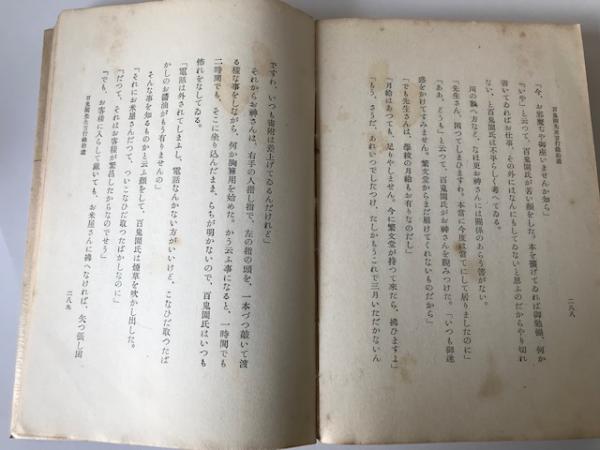 百鬼園先生言行録拾遺
二八八
「今、お邪魔ぢや御座いませんか知ら」
「いや」と云つて、百鬼園氏が苦い顔をした。本を擴げてゐれば御勉強、何か
書いてゐればお仕事、その外にはなんにもしてゐないと思ふのだからやり切れ
ない、と百鬼園氏は不平らしく考へてゐる。
河の數へ方など、なほ更お神さんには關係のあらう筈がない。
「先生さん、困つてしまひますわ。本當に今度は當てにして居りましたのに」
「ああ、どうも」と云つて、百鬼園氏がお神さんを睨みつけた。「いつも御迷
惑をかけてすみません。繁文堂からまだ屆けてくれないものだから」
「でも先生さんは、學校の月給もお有りなのだし」
「月給はあつても、足りやしません。今に繁文堂が持つて來たら、拂ひますよ」
「もう、さうだ、あれいつでしたつけ、たしかもうこれで三月いただかないん
ですわ、いつも寄附は差上げてゐるんだけれど」
それからお神さんは、右手の人指し指で、左の指の頭を、一本づつ敲いて渡
る樣な事をしながら、何か胸算用を始めた。かう云ふ事になると、一時間でも
二時間でも、そこに坐り込んだまま、らちが明かないので、百鬼園氏はいつも
怖れをなしてゐる。
「電話は外されてしまふし、電話なんかない方がいいけど、こなひだ取つたば
かしのお醬油がもう有りませんの」
そんな事を知るものかと云ふ顔をして、百鬼園氏は煙草を吹かし出した。
「それにお米屋さんだつて、ついこなひだ取つたばかしなのに」
「だつて、それはお客樣が繁昌したからなのでせう」
「でも、お客樣に入らして戴いても、お米屋さんに拂へなければ、矢つ張し困
百鬼園先生言行録拾遺
二八九